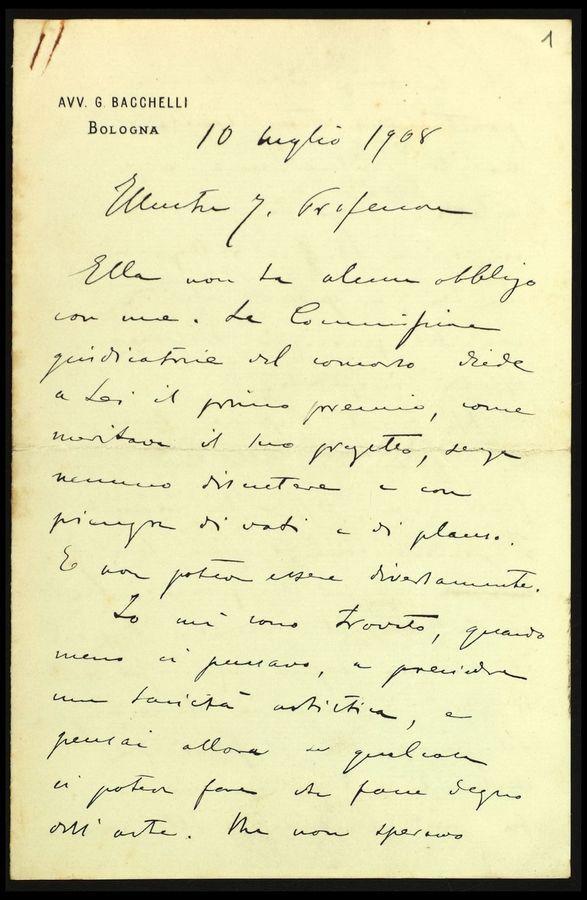 1
AVV. G. BACCHELLI
BOLOGNA
10 luglio 1908
Illustre S. Professore
Ella non ha alcun obbligo
con me. La Commissione
giudicatrice del concorso diede
a Lei il primo premio, come
meritava il suo progetto, senza
nemmeno discutere e con
pienezza di voti e di plauso.
E non poteva essere diversamente.
Io mi sono trovato, quando
meno ci pensavo, a presiedere
una società artistica, e
pensai allora se qualcosa
si poteva fare che fosse degno
dell'arte. Ma non speravo